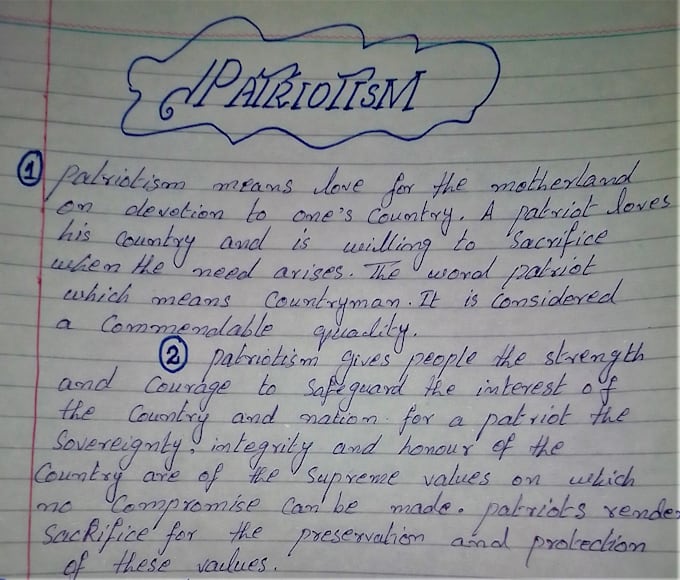 PATRIOTISM
1 patriotism means love for the motherland
on devotion to one's country. A patriot loves
his country and is willing to sacrifice
when the need arises. The word patriot
which means Countryman. It is Considered
a Commendable quality.
2 patriotism gives people the strength
and Courage to safeguard the interest of
the Country and nation. for a patriot the
Sovereignty, integrity and honour of the
Country are of the Supreme values on which
no Compromise Can be made. patriots render
Sacrifice for the preservation and protection
of these values.